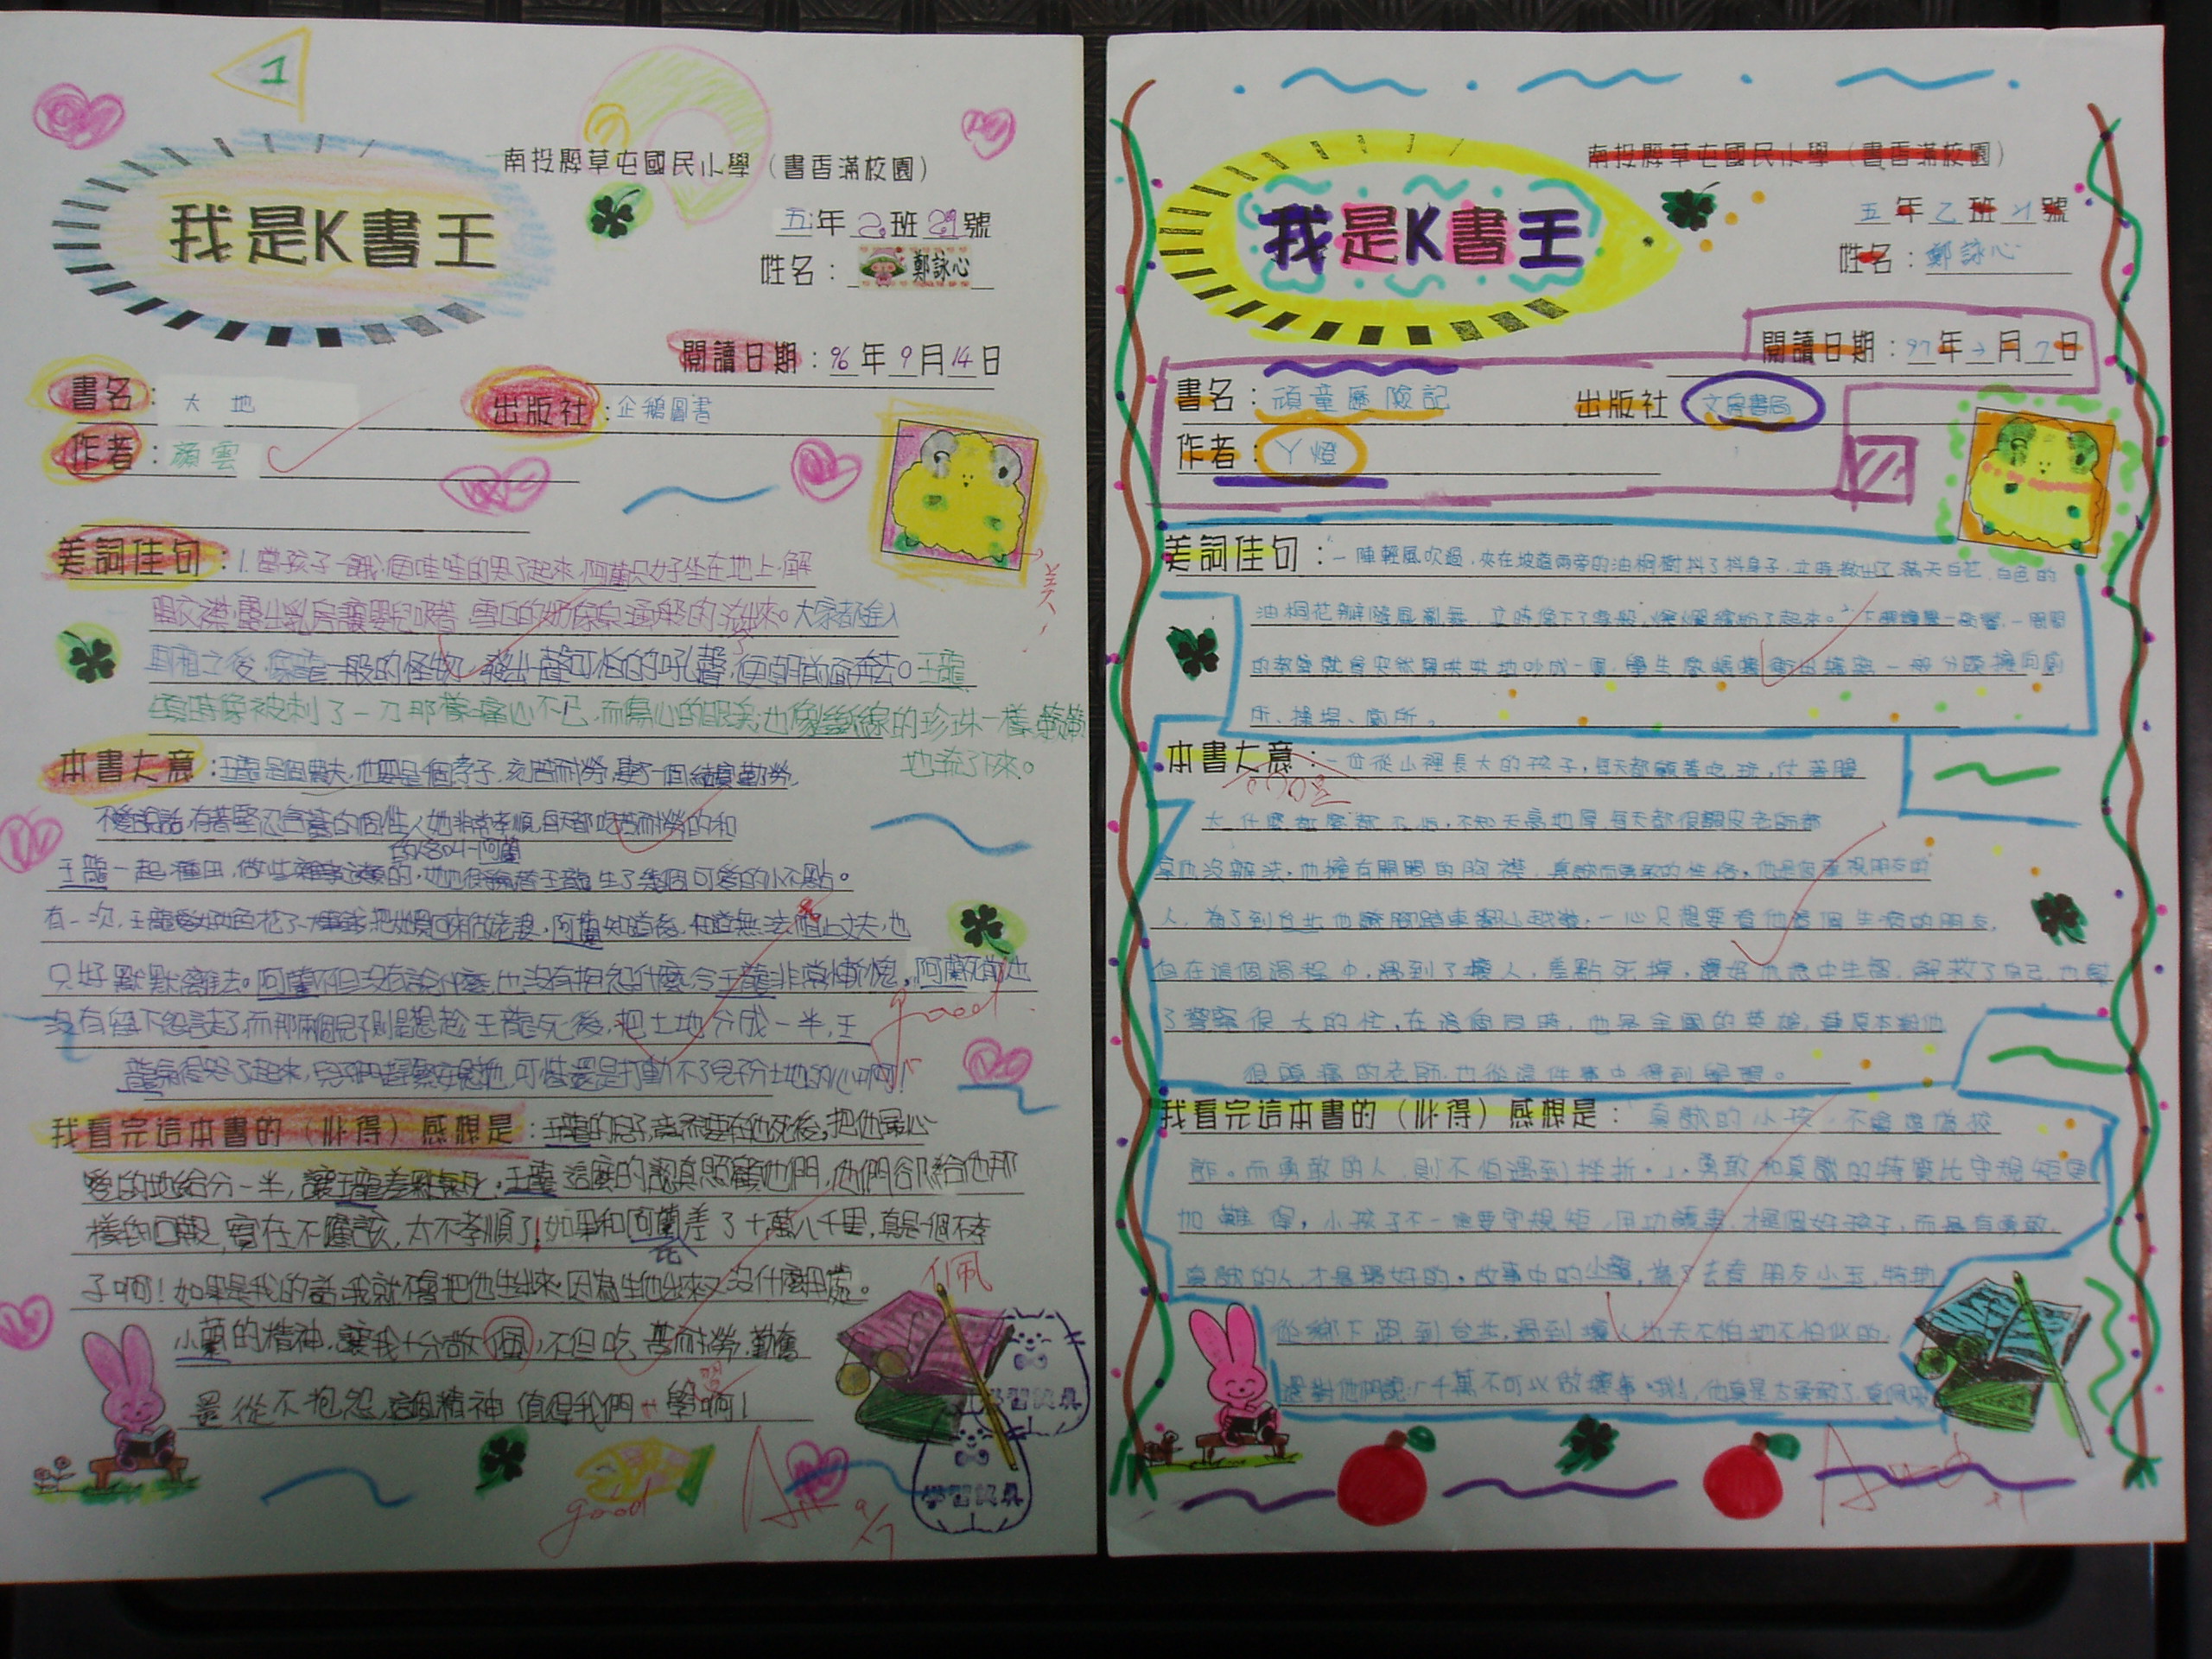 1
南投縣草屯國民小學（書香滿校園）
我是K書王
五年乙班29號
姓名：鄭詠心
閱讀日期：96年9月14日
書名：大地
出版社：企鵝圖書
作者：
美詞佳句：1.當孩子一餓,個哇哇的哭了起來,阿蘭只好坐在地上,解
開衣襟,露出乳房讓嬰兒吸著,雪白的奶像泉湧般的流出來。大家都進入
車廂之後,像龍一般的怪物,發出聲可怕的吼聲,便朝前面奔去。王龍
頓時像被刺了一刀那樣痛心不已,而傷心的眼淚,也像斷線的珍珠一樣,簌簌
地流了下來。
美
本書大意：王龍是個農夫,他也是個孝子,刻苦耐勞,娶了一個結實勤勞,
不愛說話,有著堅忍個性人她非常孝順,每天都吃苦耐勞的和
的名叫-阿蘭
王龍一起種田,做些雜事之類的,她也很替王龍生了幾個可愛的小不點。
有一次,王龍把她買回來做老婆,阿蘭知道後,知道無法阻止丈夫,也
只好默默離去。阿蘭不但沒有說什麼,也沒有抱怨什麼,令王龍非常慚愧,阿蘭死前也
沒有留下怨言走了,而那兩個兒子則是想趁王龍死後,把土地分成一半,王
龍氣得哭了起來,兒子們趕緊安慰他,可惜還是打動不了兒子分土地的心啊!
good
我看完這本書的（心得）感想是：王龍的兒子,竟而要在他死後,把他最心
愛的地給分一半,讓王龍差點氣死,王龍這麼的認真照顧他們,他們卻給他那
樣的回報,實在不應該,太不孝順了!如果和阿蘭差了十萬八千里,真是一個不孝
子啊!如果是我的話,我就不會把他生出來,因為生他出來又沒什麼用處。
佩
小蘭的精神,讓我十分敬佩,不但吃苦而耐勞,勤奮
還從不抱怨,這個精神值得我們學習啊!
good
9/7
南投縣草屯國民小學（書香滿校園）
我是K書王
五年乙班21號
姓名：鄭詠心
閱讀日期：97年2月7日
書名：頑童歷險記
出版社 文房書局
作者：丫燈
美詞佳句：一陣輕風吹過,夾在坡道兩旁的油桐樹抖了抖身子,立時撒出了滿天白花,白色的
油桐花瓣隨風亂舞,立時像下了雪般,燦爛繽紛了起來。下課鐘聲一響,一間間
的教室就會突然鬧哄哄地吵成一團,學生,一部分跑向廁
所、操場、廁所。
本書大意：一位從山裡長大的孩子,每天都顧著吃、玩,仗著膽
大,什麼都不怕,不知天高地厚,每天都很調皮老師都
拿他沒辦法,他擁有開闊的胸襟,真誠而勇敢的性格,他是個重視朋友的
人,為了到台北他騎腳踏車翻山越嶺,一心只想要看他那個生病的朋友,
但在這個過程中,遇到了壞人,差點死掉,還好他急中生智,解救了自己,也幫
了警察很大的忙,在這個同時,他是全國的英雄,連原本對他
很頭痛的老師,也從這件事中得到學習。
我看完這本書的（心得）感想是：真誠的小孩,不會虛偽狡
詐。而勇敢的人,則不怕遇到挫折。勇敢和真誠的特質比守規矩更
加難得,小孩子不一定要守規矩、用功讀書,才是個好孩子,而是有勇敢、
真誠的人,才是最好的。故事中的小龍,為了去看朋友小玉,特地
從鄉下跑到台北,遇到壞人也天不怕地不怕似的,
還對他們說:「千萬不可以做壞事」哦!他真是太勇敢了,真佩服